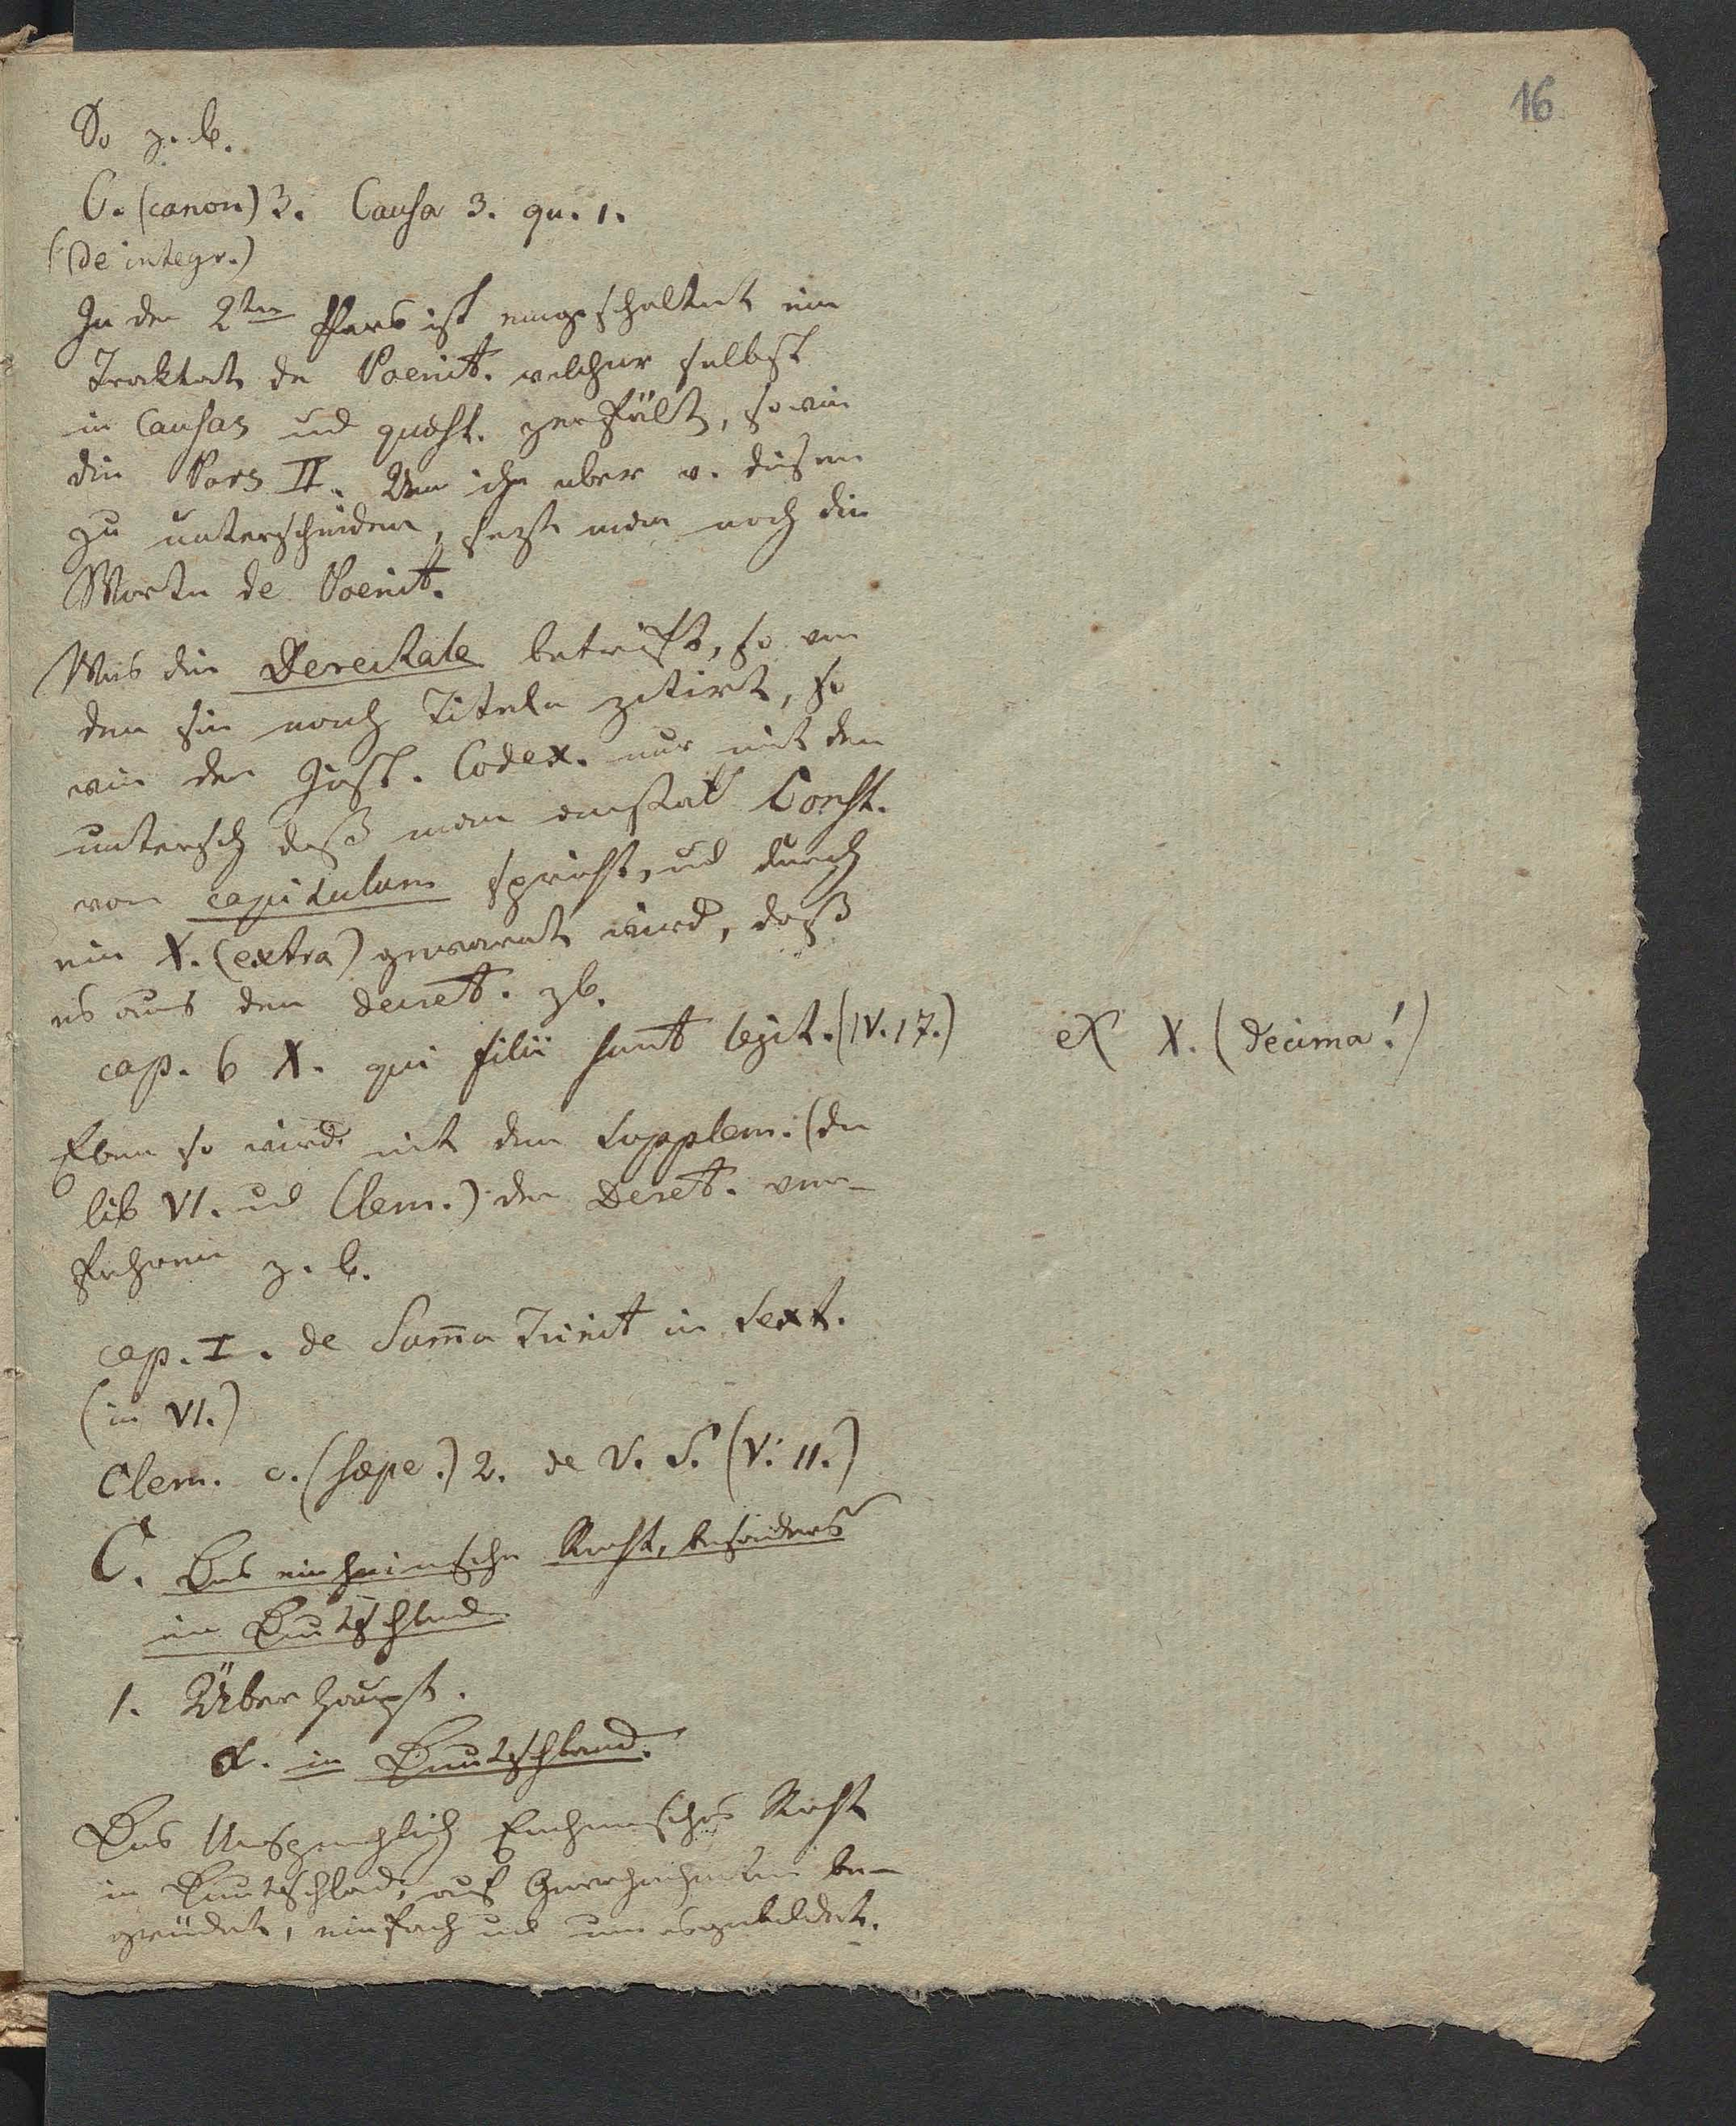 16
So z. b.
C. (canon) 3. Causa 3. qu. 1.
(De integr.)
In der 2ten Pars ist eingeschaltet ein
Traktat de Poenit. welcher selbst
in Causas und quaest. zerfällt, so wie
die Pars II. Um ihn aber v. diesem
zu unterscheiden, sezt man noch die
Worte de Poenit.
Was die Decretale betrifft, so wer
den sie nach Titeln zitirt, so
wie der Just. Codex. nur mit dem
untersch daß man anstatt Const.
von capitulum spricht, und durch
ein X. (extra) gewarnt wird, daß
es aus den decret. zb.
cap. 6 X. qui filii sunt legit. (IV. 17.)
ex X. (decima!)
Eben so wird mit dem Supplem. (dem
lib VI. und Clem.) der Decret. ver-
fahren z. b.
cap. I. de Suma Trinit in Sext.
(in VI.)
Clem. c. (saepe.) 2. de V. S. (V. 11.)
C. Das einheimische Recht, besonders
in Deutschland.
1. Überhaupt.
α. in Deutschland.
Das Ursprünglich Einheimische Recht
in Deutschland, auf Gewohnheiten be-
gründet, einfach und unausgebildet.